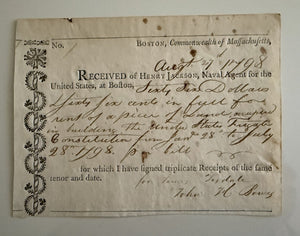 No. BOSTON, Commonwealth of Massachusetts,
August 7 1798
RECEIVED of HENRY JACKSON, Naval Agent for the
United States, at Boston, Sixty Six Dollars
& sixty six cents in full for
rent of a piece of Land
in building the United States Frigate
Constitution from 28th to July
28th 1798 p. bill
for which I have signed duplicate Receipts of the same
tenor and date.
for
John H